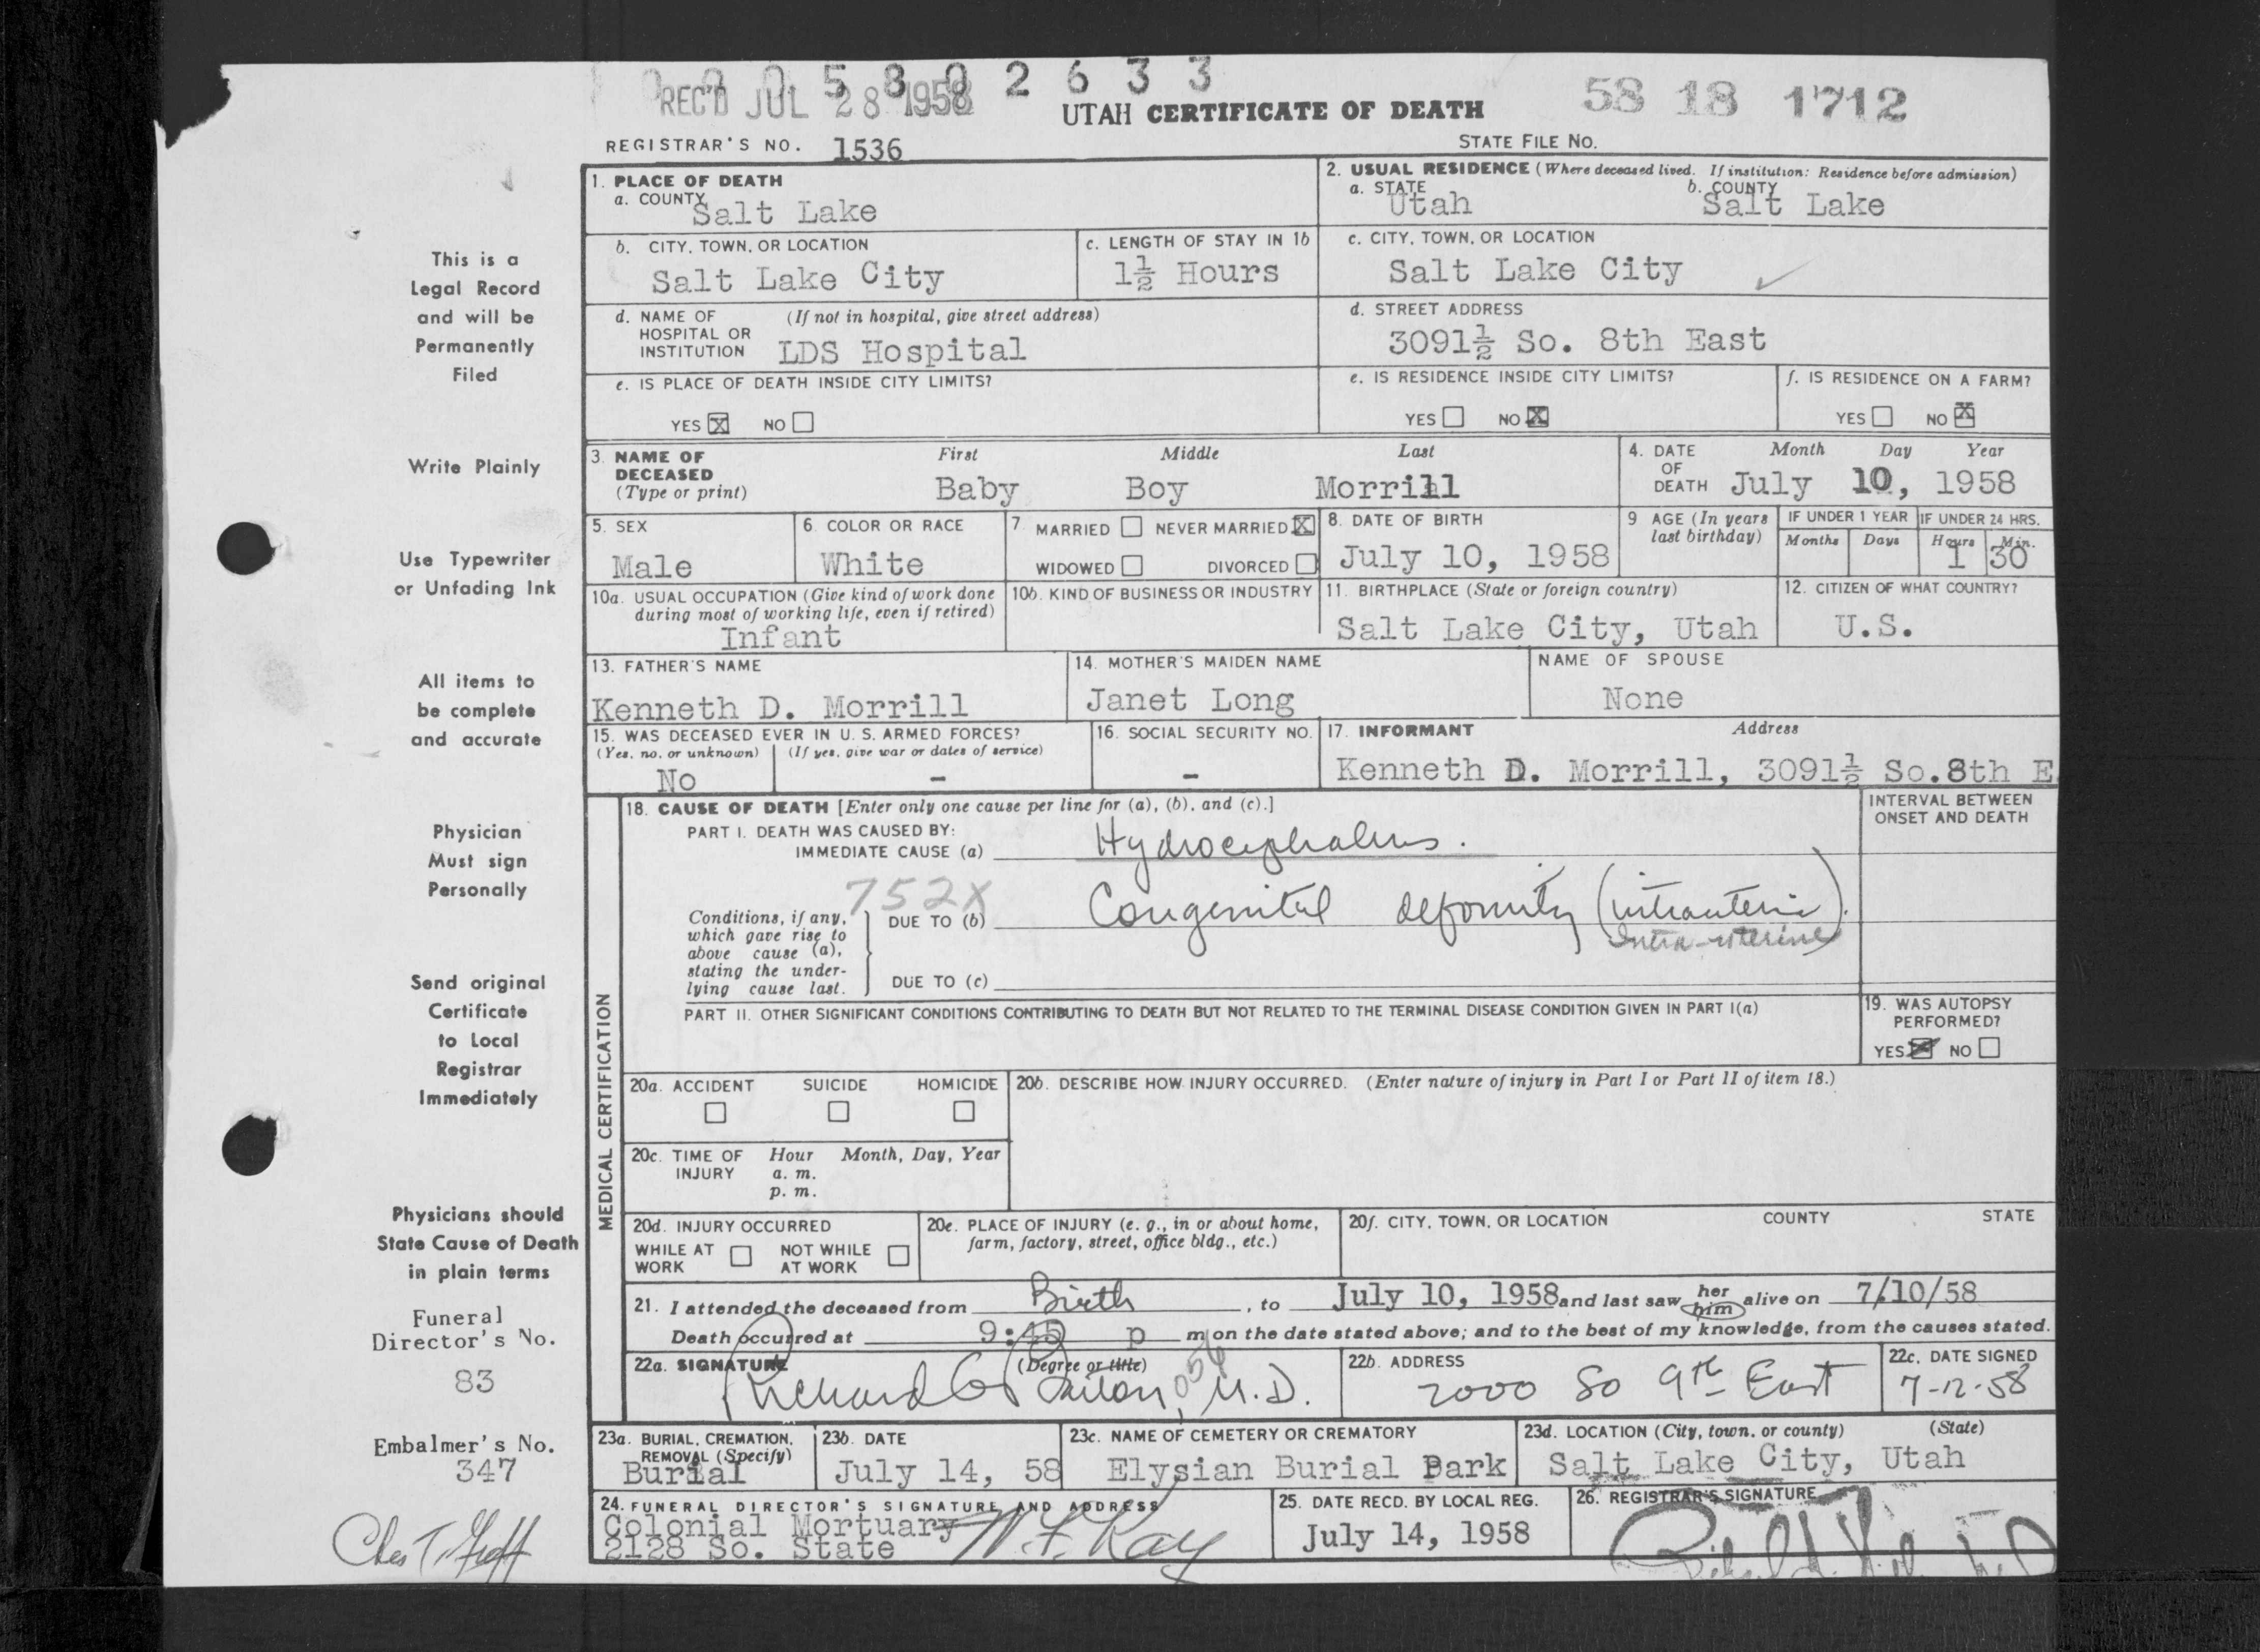 0 0 0 5 8 0 2 6 3 3
REC'D JUL 28 1958
58 18 1712
UTAH CERTIFICATE OF DEATH
REGISTRAR'S NO. 1536
STATE FILE NO.
1. PLACE OF DEATH
a. COUNTY Salt Lake
2. USUAL RESIDENCE (Where deceased lived. If institution: Residence before admission)
a. STATE Utah b. COUNTY Salt Lake
b. CITY, TOWN, OR LOCATION Salt Lake City
c. LENGTH OF STAY IN 1b 1½ Hours
c. CITY, TOWN, OR LOCATION Salt Lake City
d. NAME OF HOSPITAL OR INSTITUTION (If not in hospital, give street address) LDS Hospital
d. STREET ADDRESS 3091½ So. 8th East
e. IS PLACE OF DEATH INSIDE CITY LIMITS?
YES X NO
e. IS RESIDENCE INSIDE CITY LIMITS?
YES NO X
f. IS RESIDENCE ON A FARM?
YES NO X
3. NAME OF DECEASED (Type or print)
First Middle Last
Baby Boy Morrill
4. DATE OF DEATH Month Day Year
July 10, 1958
5. SEX Male
6. COLOR OR RACE White
7. MARRIED NEVER MARRIED X
WIDOWED DIVORCED
8. DATE OF BIRTH July 10, 1958
9 AGE (In years last birthday)
IF UNDER 1 YEAR Months Days
IF UNDER 24 HRS. Hours Min.
1 30
10a. USUAL OCCUPATION (Give kind of work done during most of working life, even if retired)
Infant
10b. KIND OF BUSINESS OR INDUSTRY
11. BIRTHPLACE (State or foreign country)
Salt Lake City, Utah
12. CITIZEN OF WHAT COUNTRY?
U.S.
13. FATHER'S NAME
Kenneth D. Morrill
14. MOTHER'S MAIDEN NAME
Janet Long
NAME OF SPOUSE
None
15. WAS DECEASED EVER IN U. S. ARMED FORCES?
(Yes, no, or unknown) (If yes, give war or dates of service)
No -
16. SOCIAL SECURITY NO.
-
17. INFORMANT Address
Kenneth D. Morrill, 3091½ So.8th E
MEDICAL CERTIFICATION
18. CAUSE OF DEATH [Enter only one cause per line for (a), (b), and (c).]
INTERVAL BETWEEN ONSET AND DEATH
PART I. DEATH WAS CAUSED BY:
IMMEDIATE CAUSE (a) Hydrocephalus.
752X
Conditions, if any, which gave rise to above cause (a), stating the underlying cause last.
DUE TO (b) Congenital deformity (intrauterine).
Intra-uterine
DUE TO (c)
PART II. OTHER SIGNIFICANT CONDITIONS CONTRIBUTING TO DEATH BUT NOT RELATED TO THE TERMINAL DISEASE CONDITION GIVEN IN PART I(a)
19. WAS AUTOPSY PERFORMED?
YES X NO
20a. ACCIDENT SUICIDE HOMICIDE
20b. DESCRIBE HOW INJURY OCCURRED. (Enter nature of injury in Part I or Part II of item 18.)
20c. TIME OF INJURY Hour Month, Day, Year
a. m.
p. m.
20d. INJURY OCCURRED
WHILE AT WORK NOT WHILE AT WORK
20e. PLACE OF INJURY (e. g., in or about home, farm, factory, street, office bldg., etc.)
20f. CITY, TOWN, OR LOCATION COUNTY STATE
21. I attended the deceased from Birth, to July 10, 1958 and last saw her him alive on 7/10/58
Death occurred at 9:45 p m on the date stated above; and to the best of my knowledge, from the causes stated.
22a. SIGNATURE (Degree or title)
Richard M.D.
056
22b. ADDRESS
2000 So 9th East
22c. DATE SIGNED
7-12-58
23a. BURIAL, CREMATION, REMOVAL (Specify)
Burial
23b. DATE
July 14, 58
23c. NAME OF CEMETERY OR CREMATORY
Elysian Burial Park
23d. LOCATION (City, town, or county) (State)
Salt Lake City, Utah
24. FUNERAL DIRECTOR'S SIGNATURE AND ADDRESS
Colonial Mortuary
2128 So. State
W. F. Kay
25. DATE RECD. BY LOCAL REG.
July 14, 1958
26. REGISTRAR'S SIGNATURE
This is a
Legal Record
and will be
Permanently
Filed
Write Plainly
Use Typewriter
or Unfading Ink
All items to
be complete
and accurate
Physician
Must sign
Personally
Send original
Certificate
to Local
Registrar
Immediately
Physicians should
State Cause of Death
in plain terms
Funeral
Director's No.
83
Embalmer's No.
347